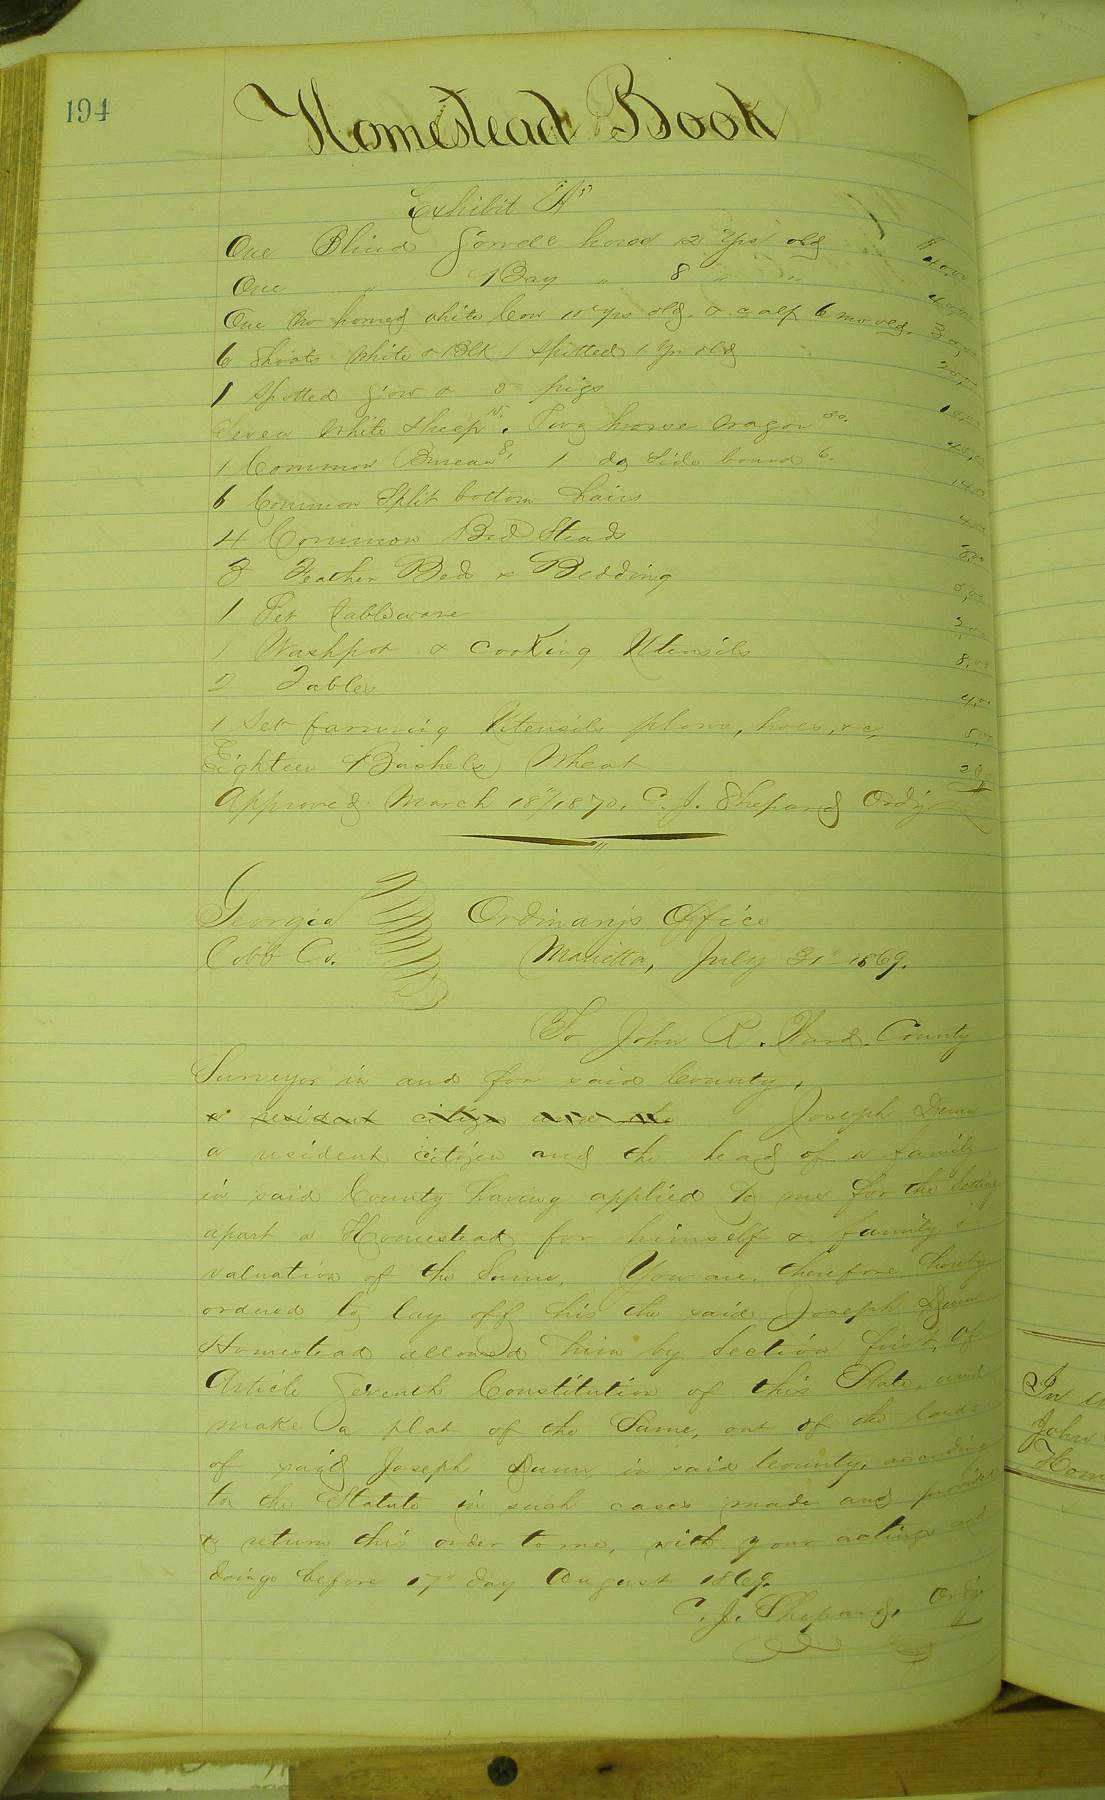 194
Homestead Book
Exhibit "A"
One Blind Sorrele horse 12 yrs old $40.00
One " Bay " 8 " " 40.00
One no horned white Cow 10 yrs old. & calf 6 mo old. 30.00
6 Shoats White & Blk / Spitted 1 Yr old 20.00
1 Spotted Sow & 5 pigs 10.00
Seven White Sheep 15. Two horse wagon 30. 45.00
1 Common Bureau 8. 1 do Side board 6. 14.00
6 Common Split bottom Chairs 4.00
4 Common Bed Steads
3 Feather Beds & Bedding
1 Set Tableware
1 Washpot & Cooking Utensils 8.00
2 Tables 4.00
1 Set farming Utensils plows, hoes, &c,
Eighteen Bushels Wheat
Approved March 18"/1870. C. J. Shepard Ord'y
Georgia Ordinary's Office
Cobb Co. Marietta, July 31st 1869.
To John R. Ward. County
Surveyor in and for said County.
a resident citizen and the Joseph Dunn
a resident citizen and the head of a family
in said County having applied to me for the Setting
apart a Homestead for himself & family &
valuation of the Same. You are therefore hereby
ordered to lay off his the said Joseph Dunn
Homestead allowed him by Section first, of
Article Seventh Constitution of this State, and
make a plat of the Same, out of the lands
of said Joseph Dunn in said County, according
to the Statute in such cases made and provided
& return this order to me, with your actings and
doings before 17" day August 1869.
C. J. Shepard, Ord'y
In
John
Hom